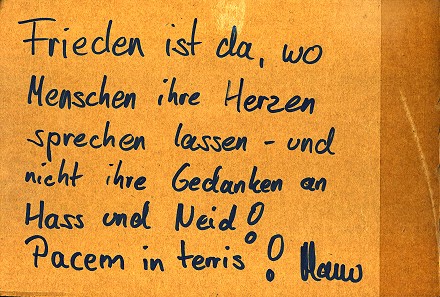 Frieden ist da, wo
Menschen ihre Herzen
sprechen lassen - und
nicht ihre Gedanken an
Hass und Neid!
Pacem in terris!